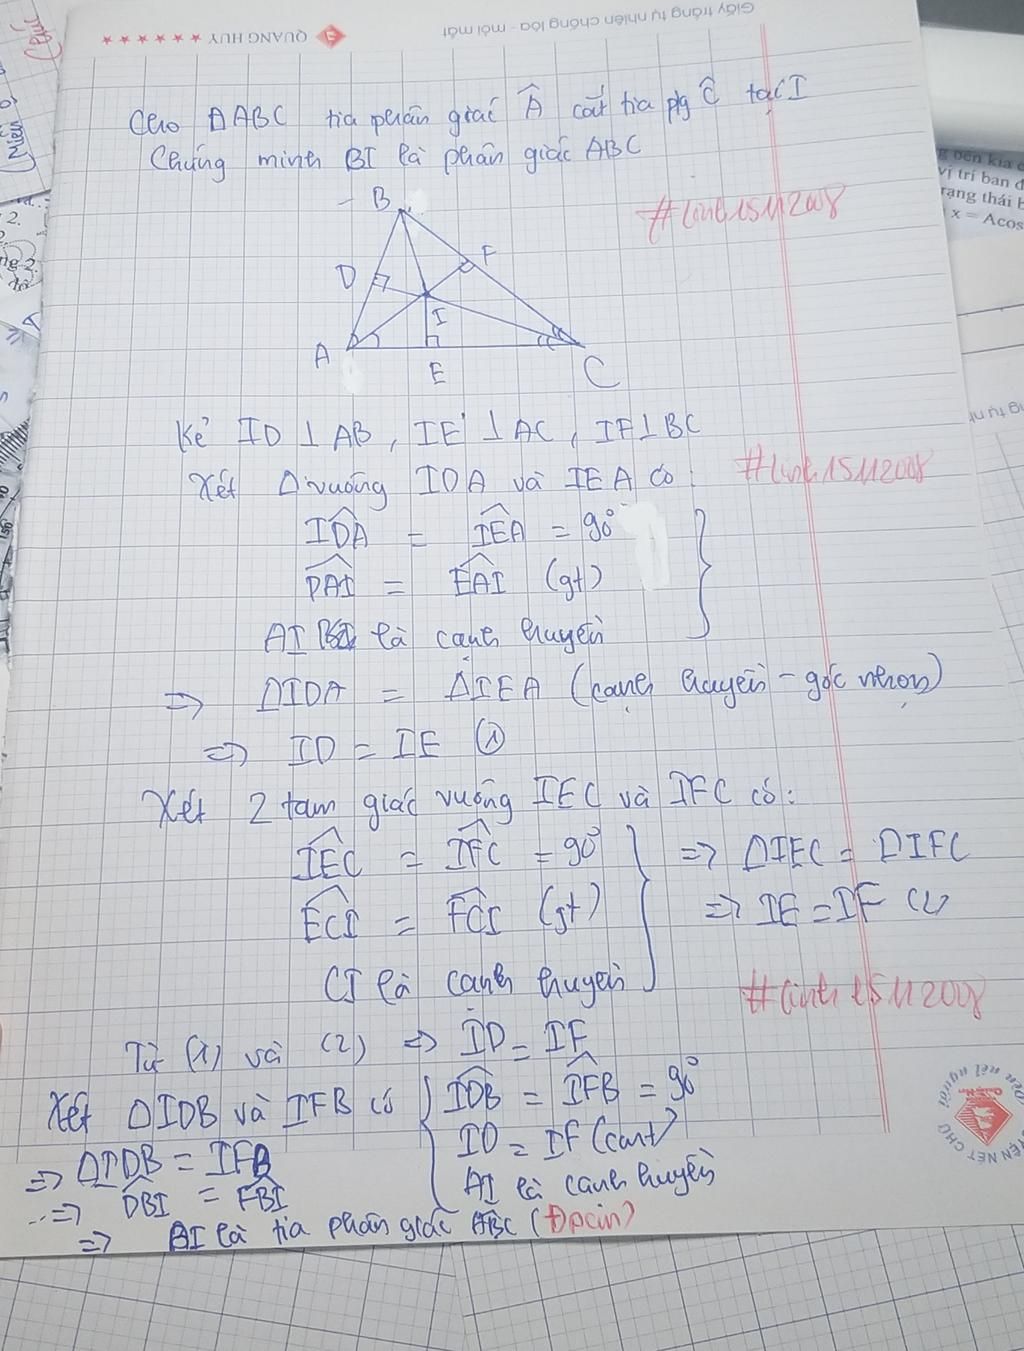 Giấy trắng tự nhiên chống lóa - mỏi mắt
QUANG HUY
Cho ΔABC tia phân giác Â cắt tia pg Ĉ tại I
Chứng minh BI là phân giác ABC
#linh15112008
B
D
F
I
A
E
C
Kẻ ID ⊥ AB, IE ⊥ AC, IF ⊥ BC
Xét Δ vuông IDA và IEA có:
#linh15112008
IDA = IEA = 90°
DAI = EAI (gt)
AI là cạnh huyền
=> ΔIDA = ΔIEA (cạnh huyền - góc nhọn)
=> ID = IE (1)
Xét 2 tam giác vuông IEC và IFC có:
IEC = IFC = 90° => ΔIEC = ΔIFC
ECI = FCI (gt) => IE = IF (2)
CI là cạnh huyền
#linh15112008
Từ (1) và (2) => ID = IF
Xét ΔIDB và IFB có IDB = IFB = 90°
ID = IF (cmt)
=> ΔIDB = IFB
AI là cạnh huyền
=> DBI = FBI
=> BI là tia phân giác ABC (Đpcm)
g bên kia
vị trí ban đ
rạng thái
x = Acos